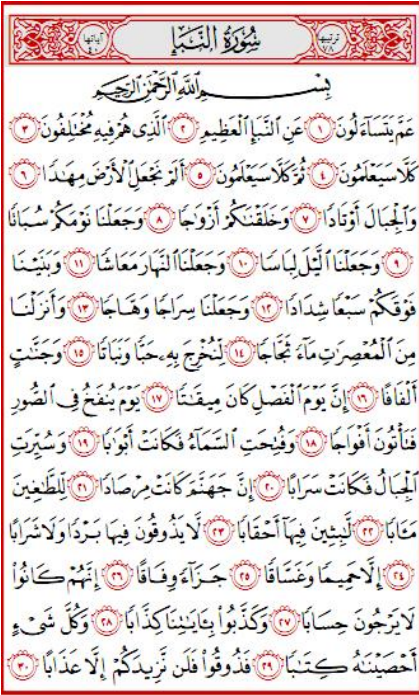 ترتيبها ٧٨ سُورَةُ النَّبَإِ آياتها ٤٠
بِسْمِ اللَّهِ الرَّحْمَٰنِ الرَّحِيمِ
عَمَّ يَتَسَاءَلُونَ ١ عَنِ النَّبَإِ الْعَظِيمِ ٢ الَّذِي هُمْ فِيهِ مُخْتَلِفُونَ ٣
كَلَّا سَيَعْلَمُونَ ٤ ثُمَّ كَلَّا سَيَعْلَمُونَ ٥ أَلَمْ نَجْعَلِ الْأَرْضَ مِهَٰدًا ٦
وَالْجِبَالَ أَوْتَادًا ٧ وَخَلَقْنَٰكُمْ أَزْوَٰجًا ٨ وَجَعَلْنَا نَوْمَكُمْ سُبَاتًا
٩ وَجَعَلْنَا اللَّيْلَ لِبَاسًا ١٠ وَجَعَلْنَا النَّهَارَ مَعَاشًا ١١ وَبَنَيْنَا
فَوْقَكُمْ سَبْعًا شِدَادًا ١٢ وَجَعَلْنَا سِرَاجًا وَهَّاجًا ١٣ وَأَنزَلْنَا
مِنَ الْمُعْصِرَٰتِ مَاءً ثَجَّاجًا ١٤ لِّنُخْرِجَ بِهِ حَبًّا وَنَبَاتًا ١٥ وَجَنَّٰتٍ
أَلْفَافًا ١٦ إِنَّ يَوْمَ الْفَصْلِ كَانَ مِيقَٰتًا ١٧ يَوْمَ يُنفَخُ فِي الصُّورِ
فَتَأْتُونَ أَفْوَاجًا ١٨ وَفُتِحَتِ السَّمَاءُ فَكَانَتْ أَبْوَٰبًا ١٩ وَسُيِّرَتِ
الْجِبَالُ فَكَانَتْ سَرَابًا ٢٠ إِنَّ جَهَنَّمَ كَانَتْ مِرْصَادًا ٢١ لِّلطَّٰغِينَ
مَـَٔابًا ٢٢ لَّٰبِثِينَ فِيهَا أَحْقَابًا ٢٣ لَّا يَذُوقُونَ فِيهَا بَرْدًا وَلَا شَرَابًا
٢٤ إِلَّا حَمِيمًا وَغَسَّاقًا ٢٥ جَزَاءً وِفَاقًا ٢٦ إِنَّهُمْ كَانُوا
لَا يَرْجُونَ حِسَابًا ٢٧ وَكَذَّبُوا بِـَٔايَٰتِنَا كِذَّابًا ٢٨ وَكُلَّ شَيْءٍ
أَحْصَيْنَٰهُ كِتَٰبًا ٢٩ فَذُوقُوا فَلَن نَّزِيدَكُمْ إِلَّا عَذَابًا ٣٠